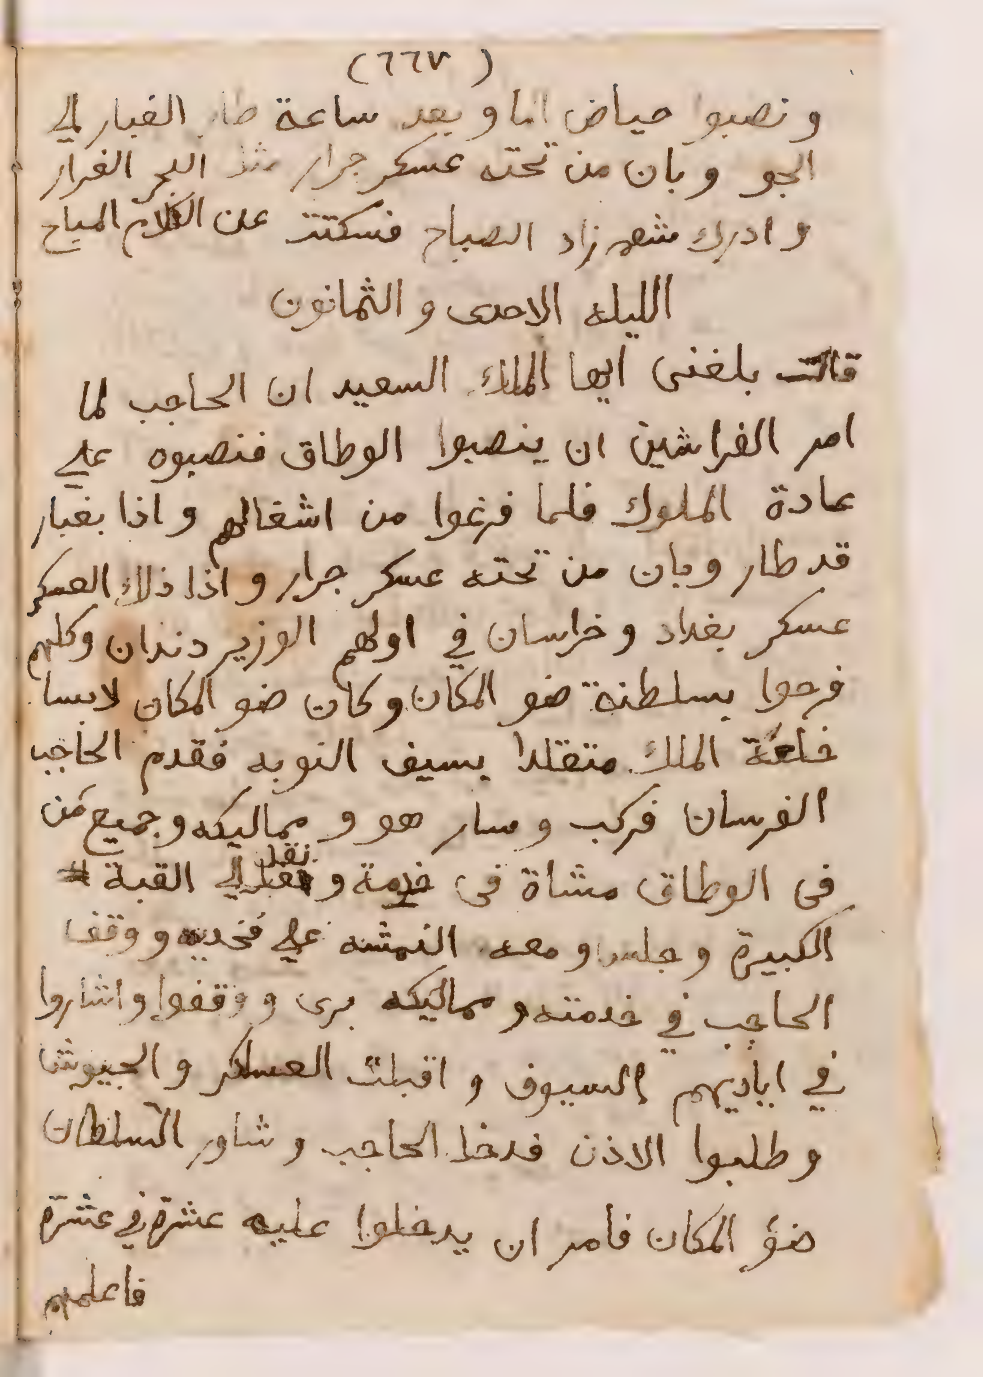 (٦٦٧)
ونصبوا حياض الما وبعد ساعة طار الغبار الي
الجو وبان من تحته عسكر جرار مثل البحر الغرار
وادرك شهرزاد الصباح فسكتت عن الكلام المباح
الليله الاحدى والثمانون
قالت بلغنى ايها الملك السعيد ان الحاجب لما
امر الفراشين ان ينصبوا الوطاق فنصبوه علي
عادة الملوك فلما فرغوا من اشغالهم واذا بغبار
قد طار وبان من تحته عسكر جرار واذا ذلك العسكر
عسكر بغداد وخراسان في اولهم الوزير دندان وكلهم
فرحوا بسلطنة ضو المكان وكان ضو المكان لابسا
خلعة الملك متقلدا بسيف النوبه فقدم الحاجب
الفرسان فركب وسار هو ومماليكه وجميع من
فى الوطاق مشاة فى خدمة و نقد الي القبة #
الكبيرة وجلس ومعه النمشه علي فخديه ووقف
الحاجب في خدمته ومماليكه برى ووقفوا واشاروا
في اياديهم السيوف واقبلت العساكر والجيوش
وطلبوا الاذن فدخل الحاجب وشاور السلطان
ضؤ المكان فامر ان يدخلوا عليه عشرة في عشرة
فاعلمهم